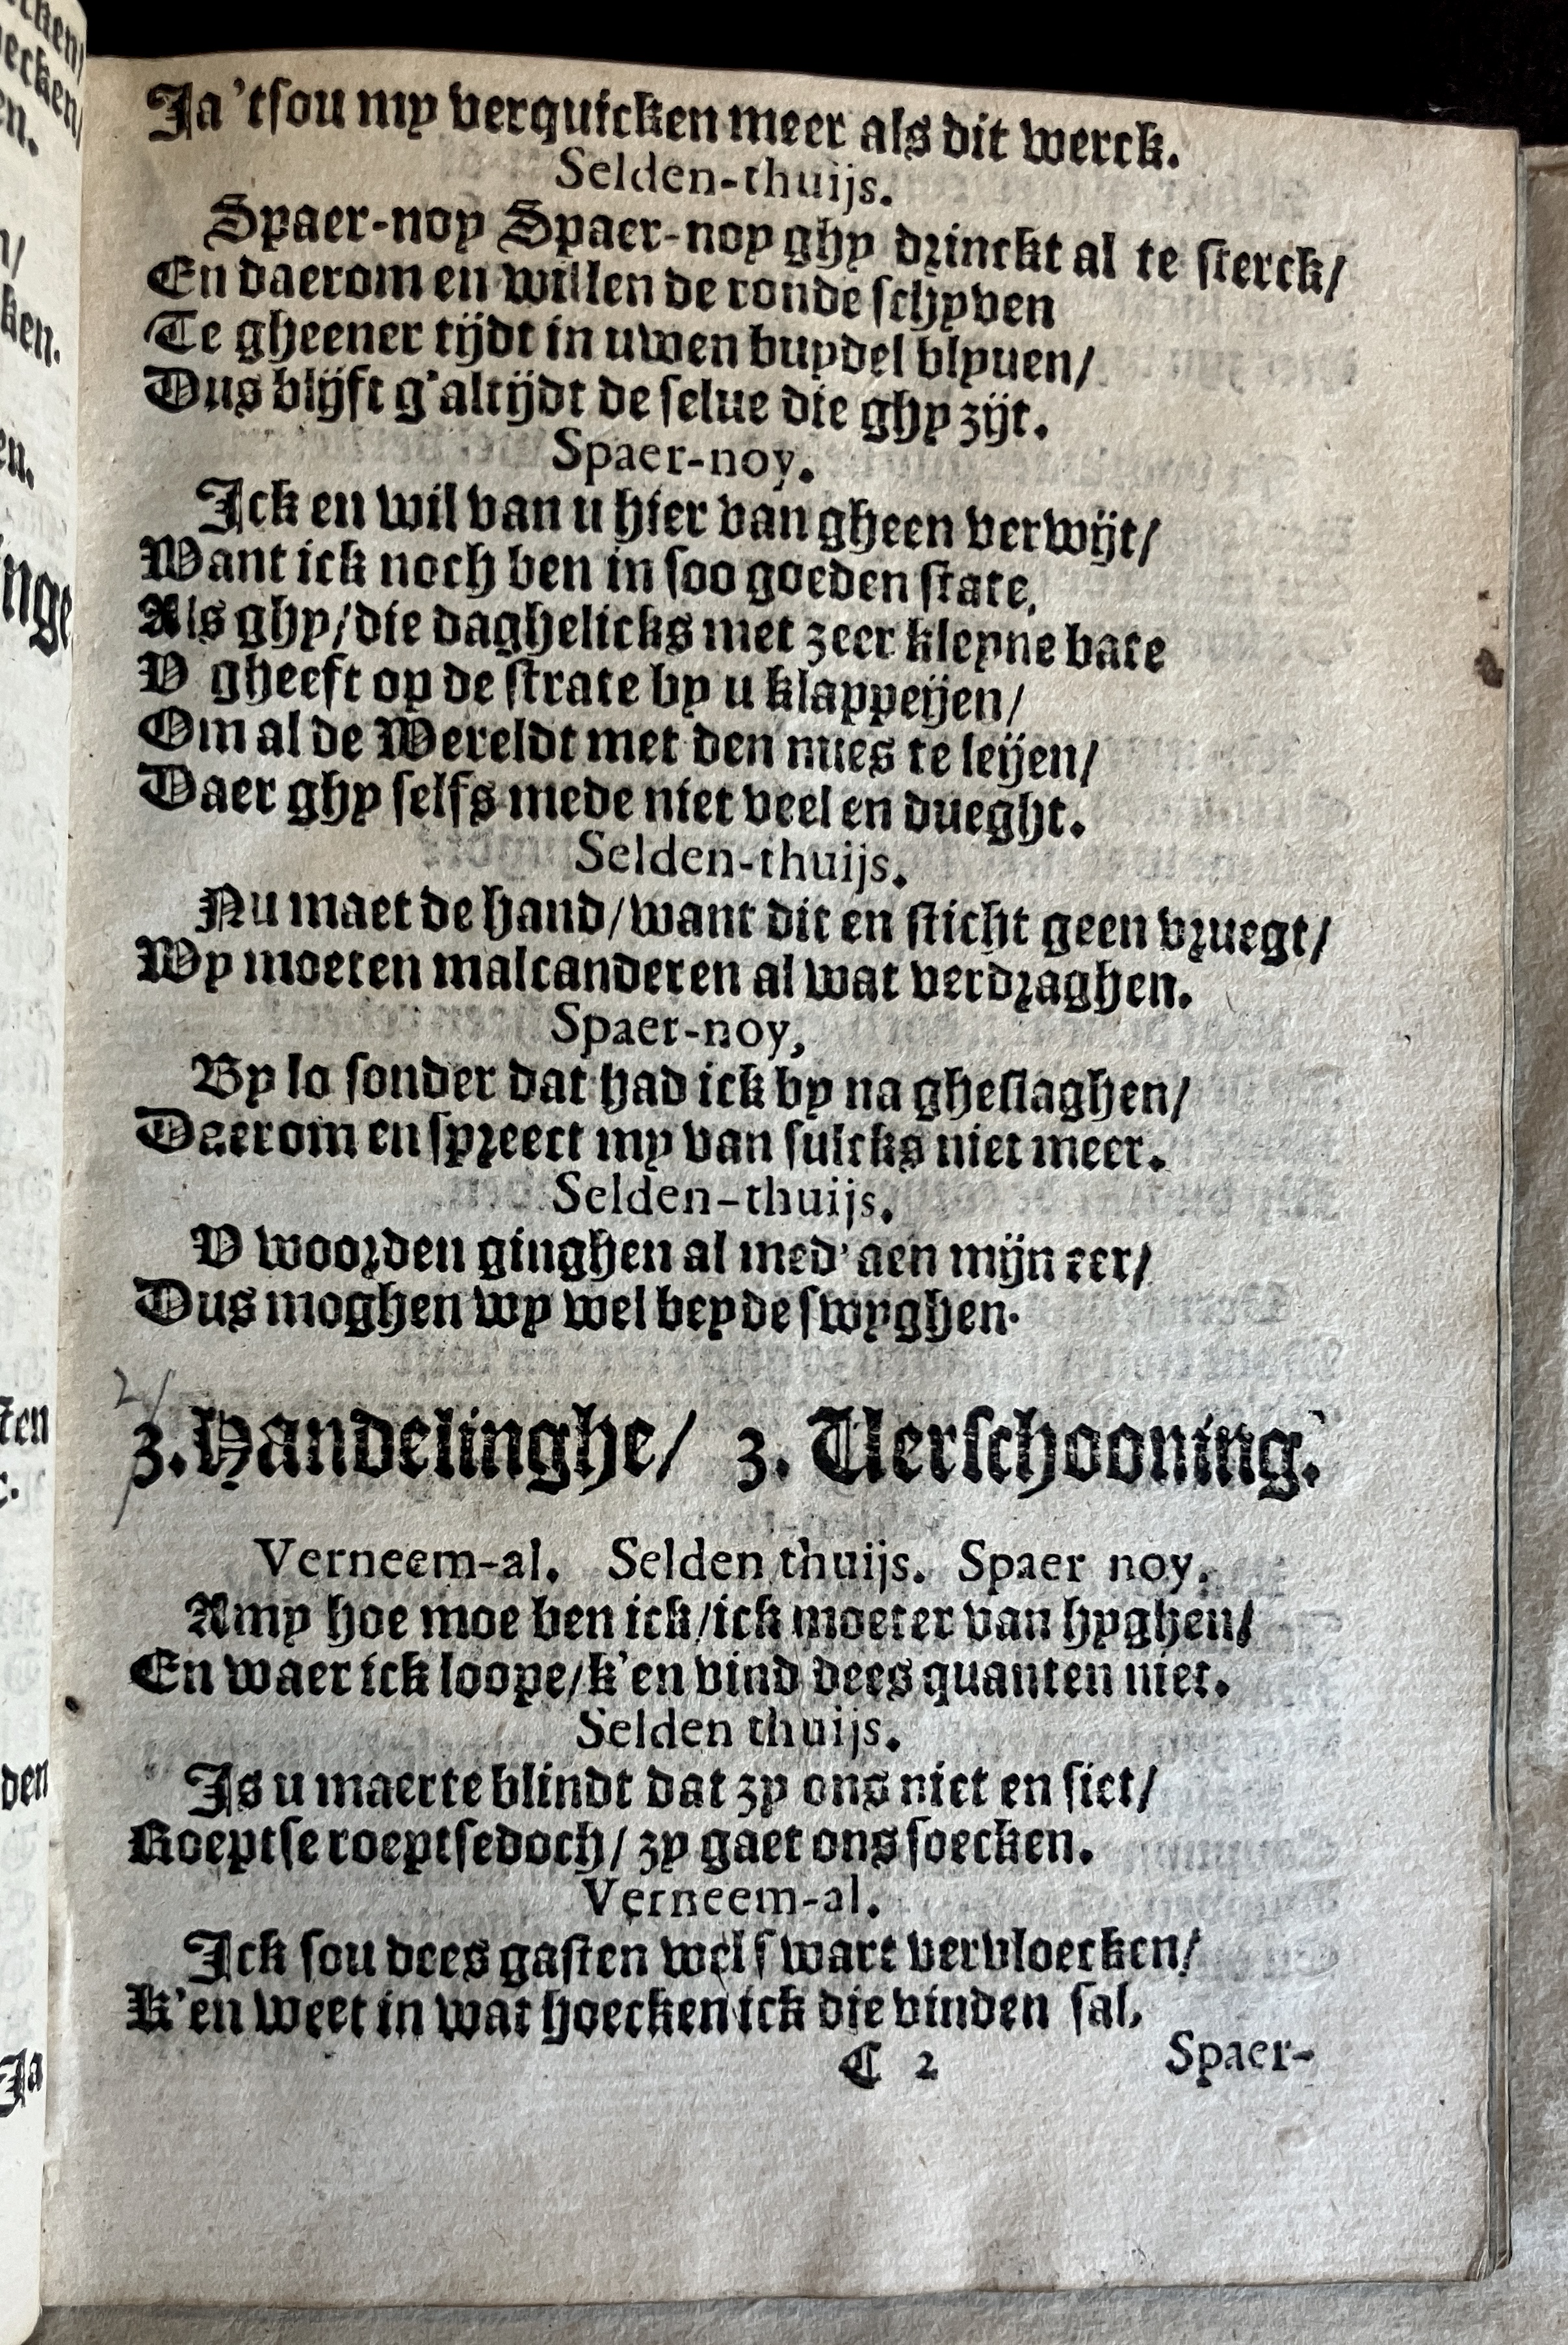 Ja 'tsou my verquicken meer als dit werck.
Selden-thuijs.
Spaer-noy Spaer-noy ghy drinckt al te sterck/
En daerom en willen de ronde schyven
Te gheener tijdt in uwen buydel blyuen/
Dus blijft g'altijdt de selue die ghy zijt.
Spaer-noy.
Ick en wil van u hier van gheen verwijt/
Want ick noch ben in soo goeden state,
Als ghy/die daghelicks met zeer kleyne bate
V gheeft op de strate by u klappeijen/
Om al de Wereldt met den nues te leijen/
Daer ghy selfs mede niet veel en dueght.
Selden-thuijs.
Nu maet de hand/want dit en sticht geen vruegt/
Wy moeten malcanderen al wat verdraghen.
Spaer-noy,
By lo sonder dat had ick by na gheslaghen/
Daerom en spreect my van sulcks niet meer.
Selden-thuijs.
V woorden ginghen al med' aen mijn eer/
Dus moghen wy wel beyde swyghen.
2/
3. Handelinghe/ 3. Verschooning.
Verneem-al. Selden thuijs. Spaer noy.
Amy hoe moe ben ick/ick moeter van hyghen/
En waer ick loope/k'en vind dees quanten niet.
Selden thuijs.
Is u maerte blindt dat zy ons niet en siet/
Roeptse roeptsedoch/ zy gaet ons soecken.
Verneem-al.
Ick sou dees gasten wel swart vervloecken/
K'en weet in wat hoecken ick die vinden sal,
C 2 Spaer-